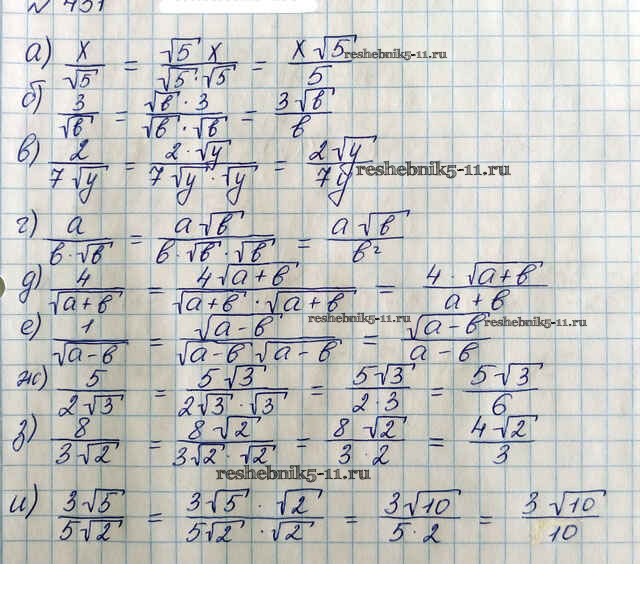 № 431
а) x/√5 = √5 x/√5·√5 = x√5/5 reshebnik5-11.ru
б) 3/√в = √в·3/√в·√в = 3√в/в
в) 2/7√y = 2·√y/7√y·√y = 2√y/7y reshebnik5-11.ru
г) а/в·√в = а√в/в·√в·√в = а√в/в²
д) 4/√а+в = 4√а+в/√а+в·√а+в = 4·√а+в/а+в
reshebnik5-11.ru
е) 1/√а-в = √а-в/√а-в·√а-в = √а-в/а-в reshebnik5-11.ru
ж) 5/2√3 = 5√3/2√3·√3 = 5√3/2·3 = 5√3/6
з) 8/3√2 = 8√2/3√2·√2 = 8√2/3·2 = 4√2/3
reshebnik5-11.ru
и) 3√5/5√2 = 3√5·√2/5√2·√2 = 3√10/5·2 = 3√10/10